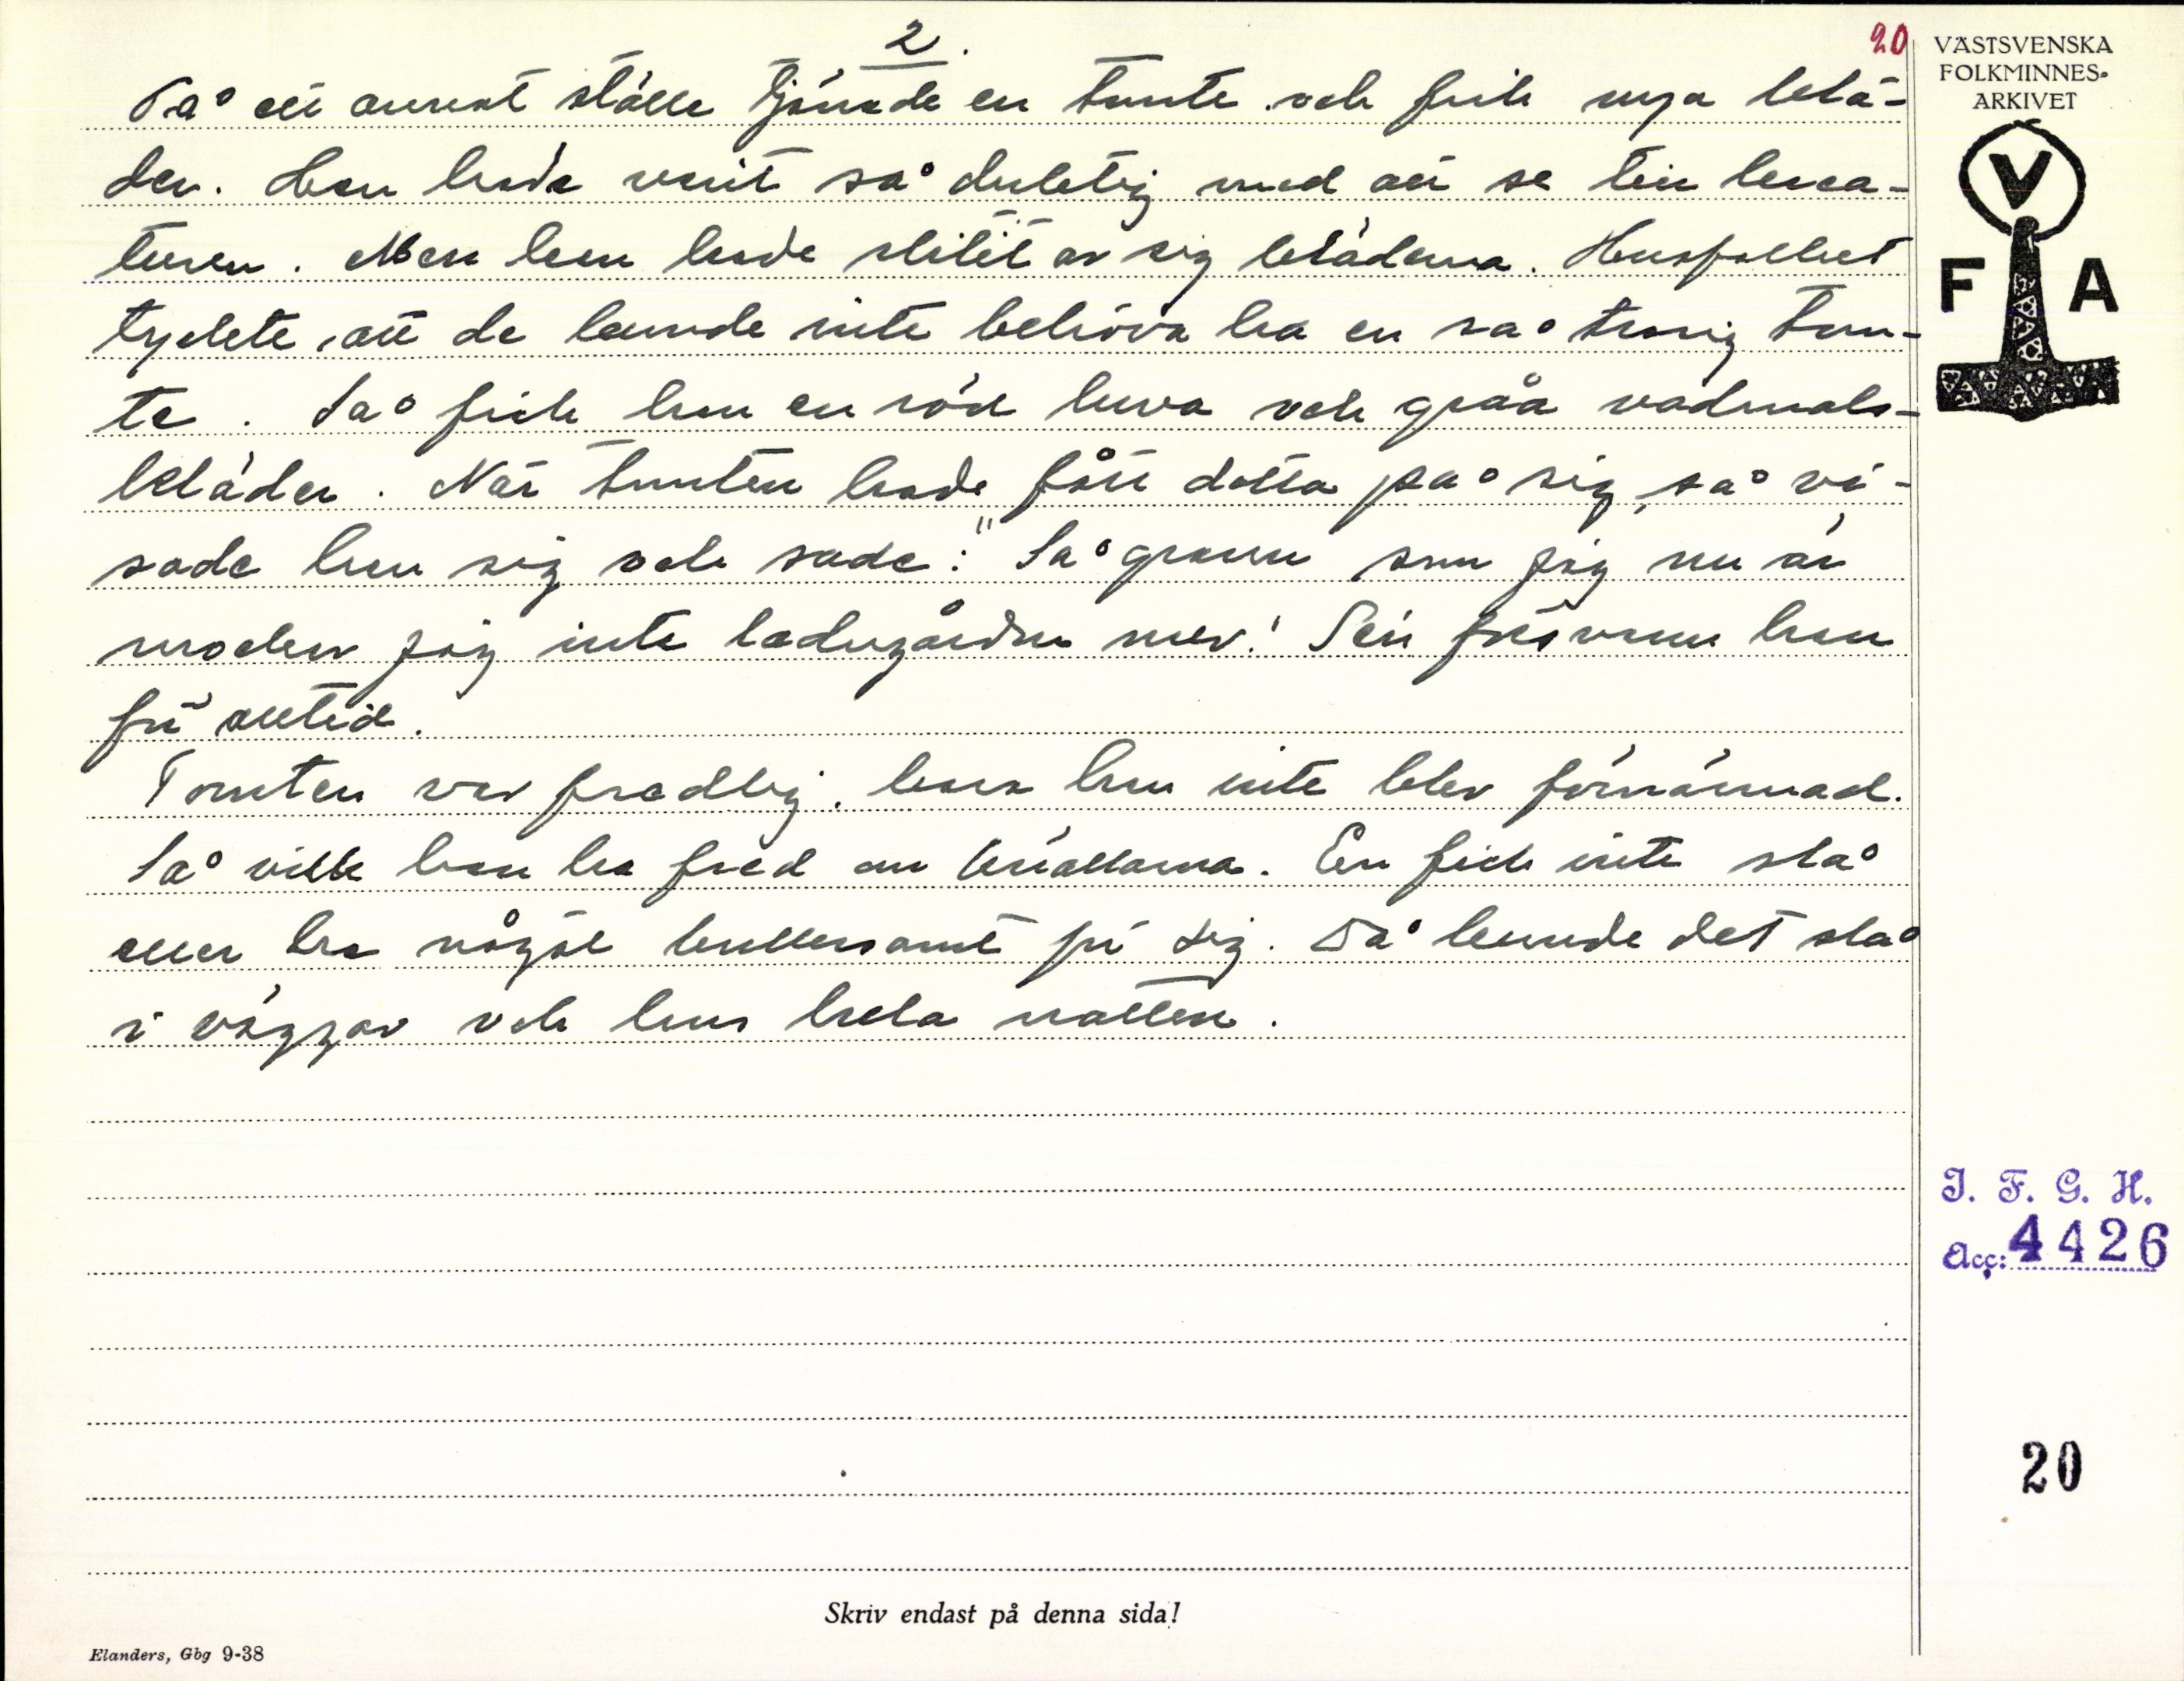 2.
20
På ett annat ställe tjänade en tomte och fick nya klä-
der. Han hade varit så duktig med att se till krea-
turen. Men han hade slitit av sig kläderna. Husfolket
tyckte, att de kunde inte behöva ha en så trasig tom-
te. Så fick han en röd luva och gråa vadmals-
kläder. När tomten hade fått detta på sig, så vi-
sade han sig och sade: "Så grann som jag nu är
mockar jag inte ladugårdar mer! Sen försvann han
för alltid.
Tomten var fredlig, bara han inte blev förnärmad.
Så ville han ha fred om kvällarna. En fick inte slå
eller ha något bullersamt för sig. Då kunde det slå
i väggar och hus hela natten.
VÄSTSVENSKA
FOLKMINNES-
ARKIVET
V
F A
I. F. G. H.
Acc: 4426
20
Skriv endast på denna sida!
Elanders, Gbg 9-38